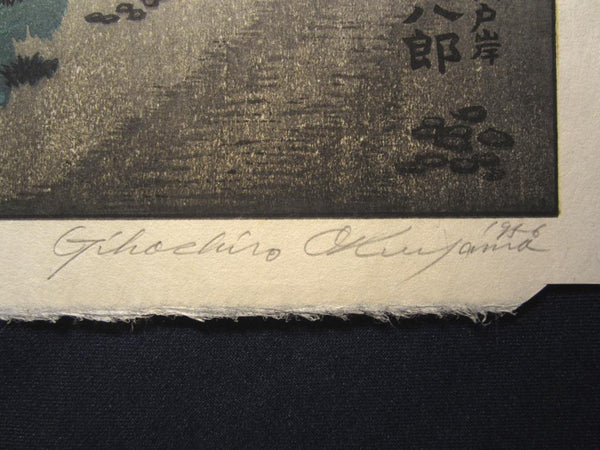 戸岸
八郎
Gihachiro Okuyama 1956